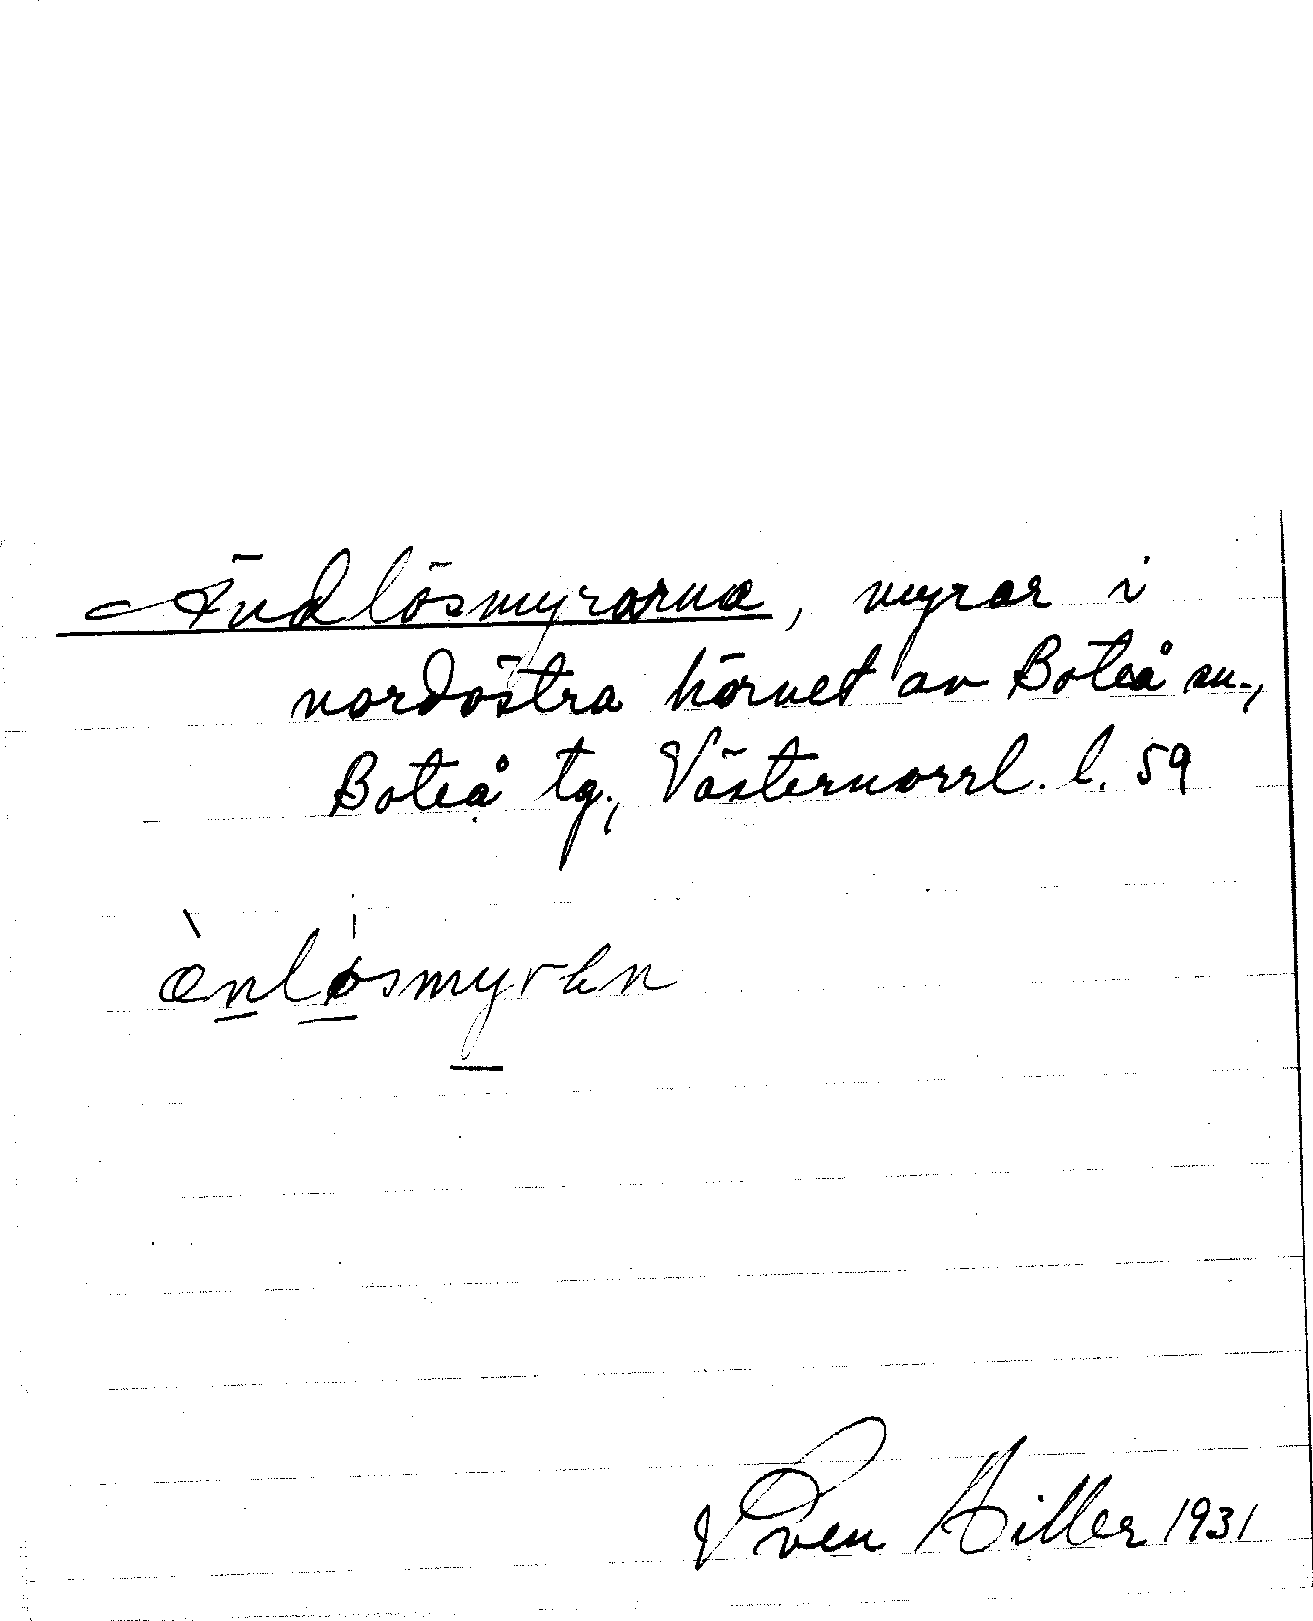 Ändlösmyrarna, myrar i
nordöstra hörnet av Boteå sn.,
Boteå tg., Västernorrl. l. 59
ænlösmyran
Sven Hiller 1931